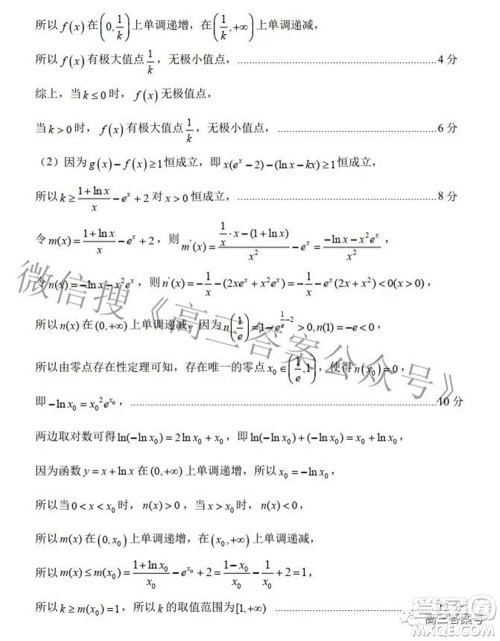 所以 f(x) 在 (0, 1/k) 上单调递增，在 (1/k, +∞) 上单调递减，
所以 f(x) 有极大值点 1/k，无极小值点，……4 分
综上，当 k≤0 时，f(x) 无极值点，
当 k>0 时，f(x) 有极大值点 1/k，无极小值点，……6 分
（2）因为 g(x)−f(x)≥1恒成立，即 x(eˣ−2)−(ln x−kx)≥1恒成立，
所以 k≥(1+ln x)/x−eˣ+2 对 x>0 恒成立，……8 分
令 m(x)=(1+ln x)/x−eˣ+2，则 m'(x)=(1/x·x−(1+ln x))/x²−eˣ=(−ln x−x²eˣ)/x²，
令 n(x)=−ln x−x²eˣ，则 n'(x)=−1/x−(2xeˣ+x²eˣ)=−1/x−eˣ(2x+x²)<0(x>0)，
所以 n(x) 在 (0,+∞) 上单调递减，因为 n(1/e)=1−e^(1/e−2)>0, n(1)=−e<0，
所以由零点存在性定理可知，存在唯一的零点 x₀∈(1/e,1)，使得 n(x₀)=0，
即 −ln x₀=x₀²e^(x₀)，……10 分
两边取对数可得 ln(−ln x₀)=2ln x₀+x₀，即 ln(−ln x₀)+(−ln x₀)=x₀+ln x₀，
因为函数 y=x+ln x 在 (0,+∞) 上单调递增，所以 x₀=−ln x₀，
所以当 0<x<x₀ 时，n(x)>0，当 x>x₀ 时，n(x)<0，
所以 m(x) 在 (0,x₀) 上单调递增，在 (x₀,+∞) 上单调递减，
所以 m(x)≤m(x₀)=(1+ln x₀)/x₀−e^(x₀)+2=(1−x₀)/x₀−1/x₀+2=1，
所以 k≥m(x₀)=1，所以 k 的取值范围为[1,+∞)
微信搜《高三答案公众号》
高三答案号